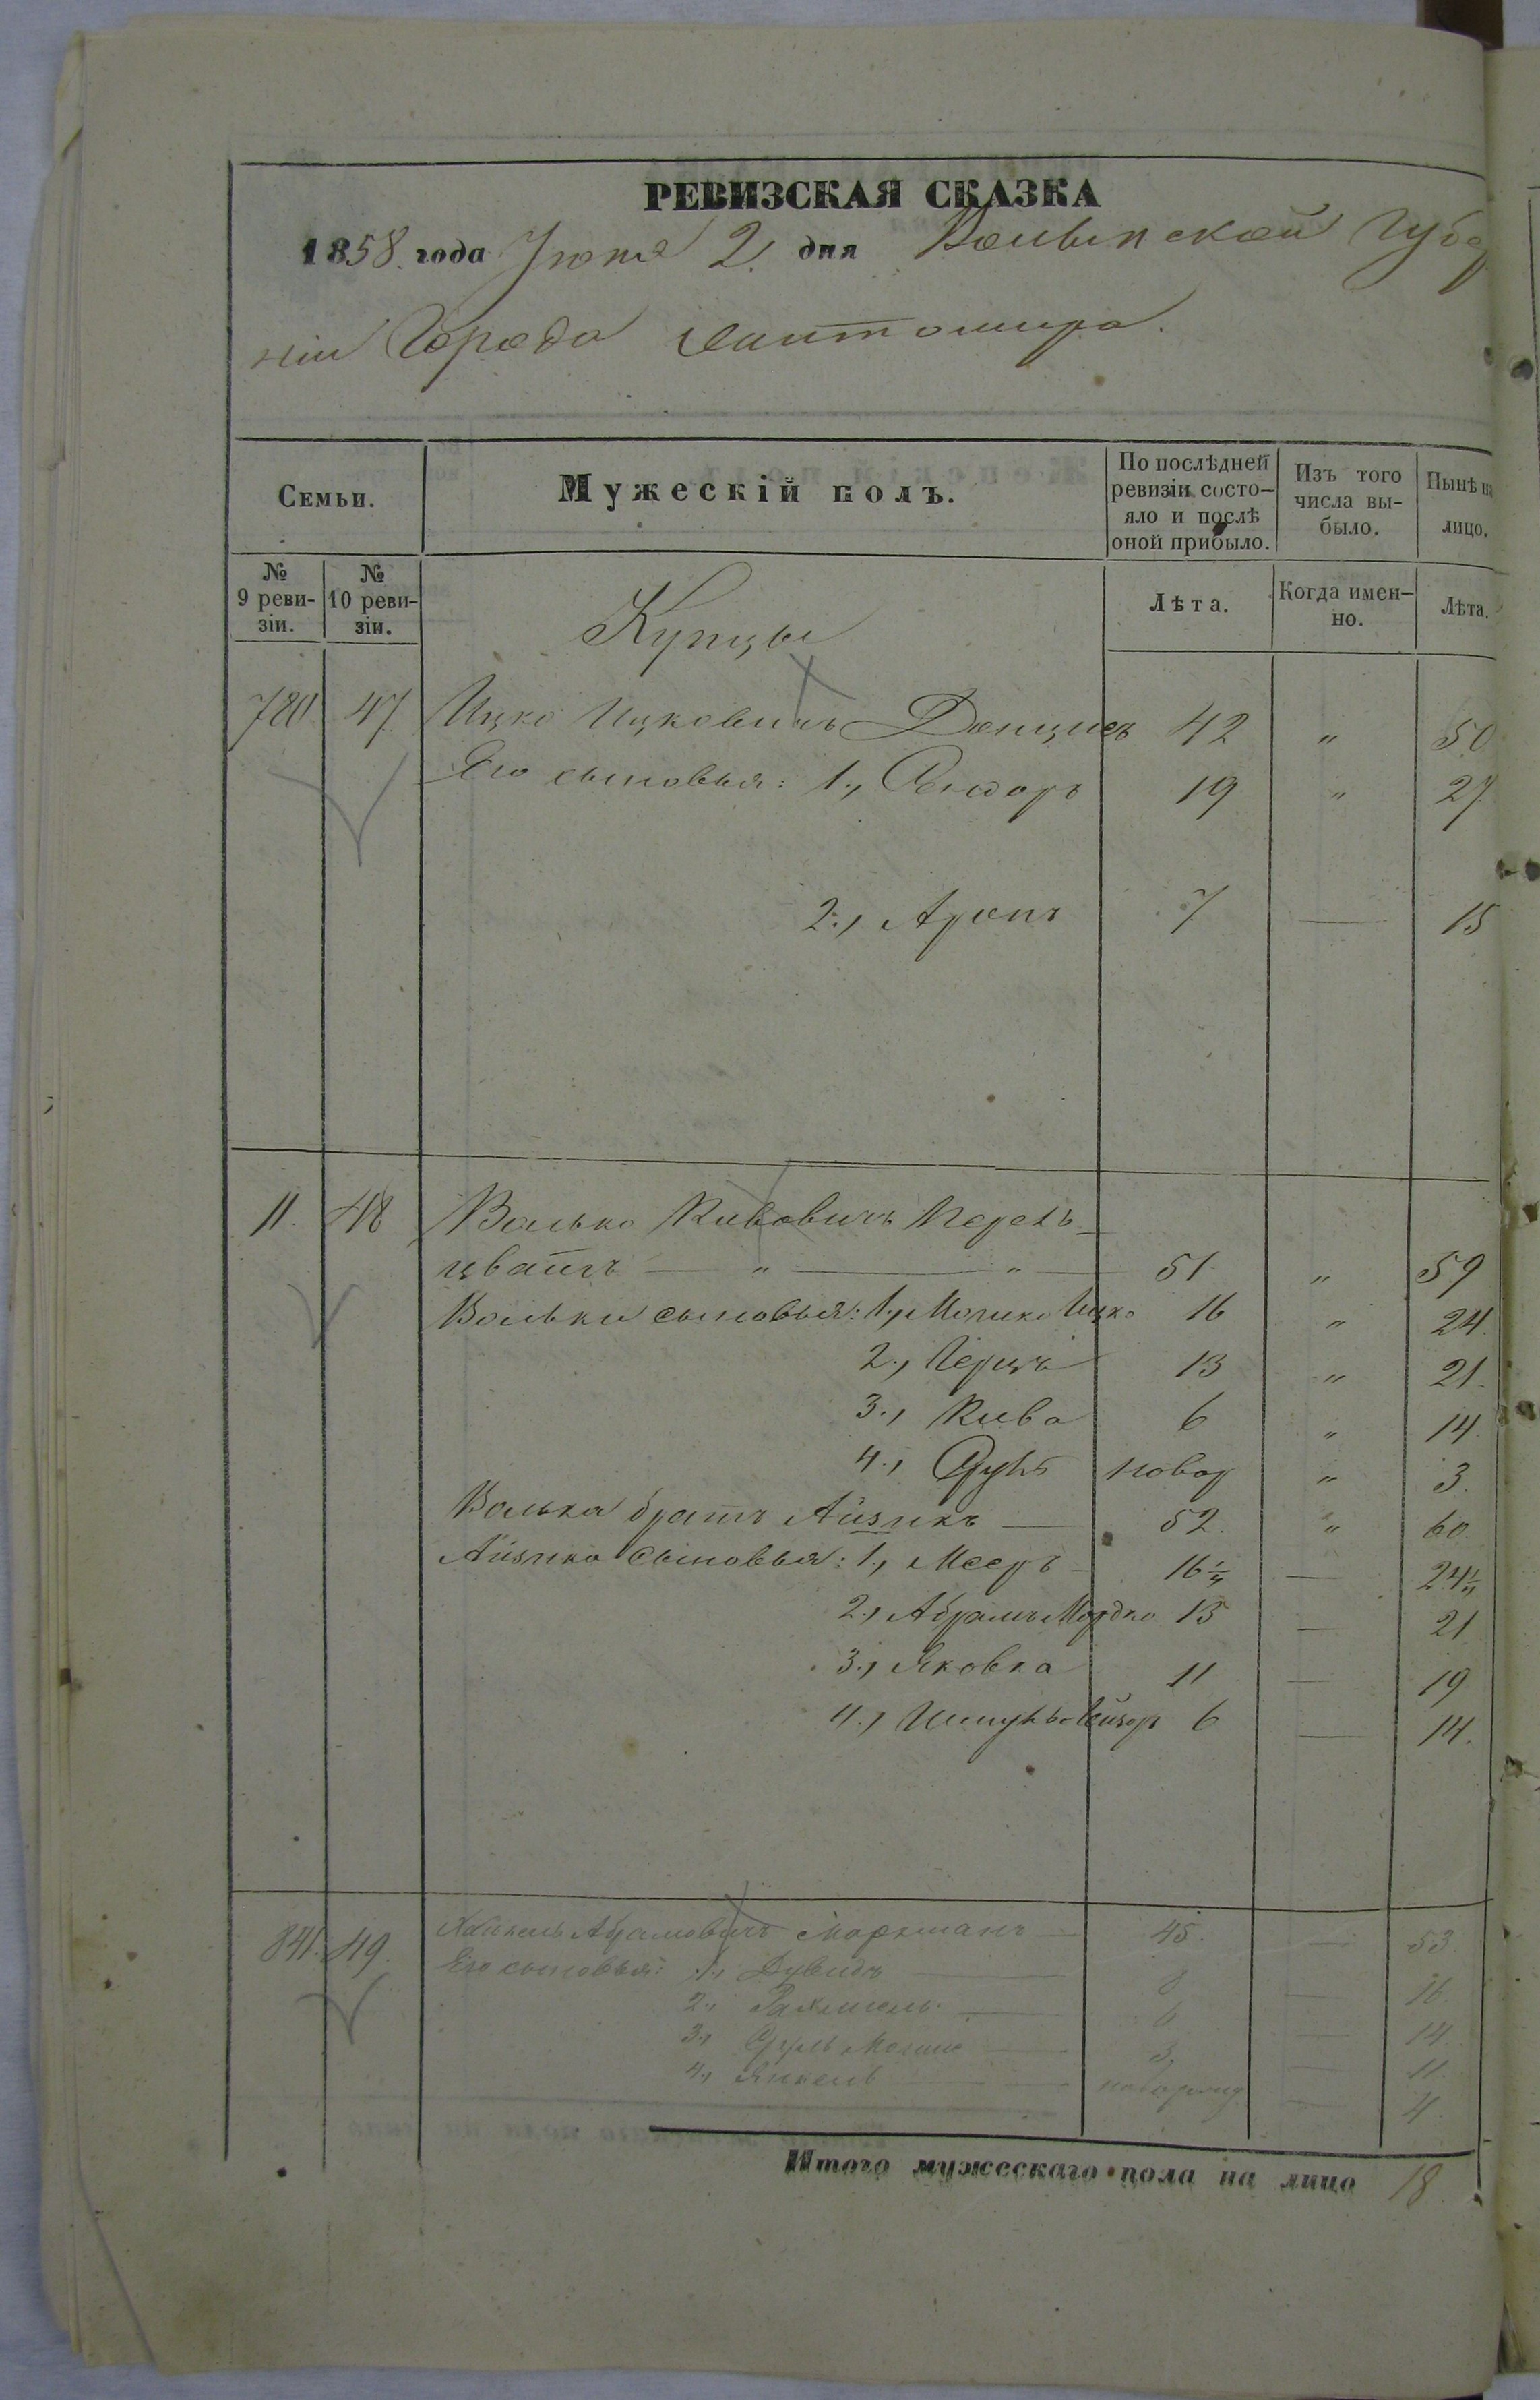 РЕВИЗСКАЯ СКАЗКА
1858. года Іюня 2. дня Волынской Губер
ніи Города Житомира.
Семьи.
Мужескій полъ.
По послѣдней ревизіи состо-
яло и послѣ оной прибыло.
Изъ того числа вы-
было.
Нынѣ на лицо.
№ 9 реви-
зіи.
№ 10 реви-
зіи.
Лѣта.
Когда имен-
но.
Лѣта.
Купцы
780. 47. Ицко Ицковичъ 42 " 50
Его сыновья: 1., 19 " 27
2., Аронъ 7 — 15
11. 48 Волько Кивовичъ Перель-
цвайгъ — " — " — 51 " 59
Вольки сыновья: 1., Мошко Ицко 16 " 24.
2., Герцъ 13 " 21.
3., Кива 6 " 14
4., Сруль новор " 3.
Волька братъ Айзикъ — 52. " 60.
Айзика сыновья: 1., Мееръ — 16½ — 24½
2., Абрамъ Мордко 13 — 21
3., Яковка 11 — 19
4., Шмуль Лейзоръ 6 — 14.
841. 49. Абрамовичъ Моргманъ 45. — 53.
Его сыновья: 1., Дувидъ — 8 — 16.
2., Рахмиель — 6 — 14
3., Сруль Мошко — 3 — 11.
4., Янкель — новорожд — 4
Итого мужескаго пола на лицо 18